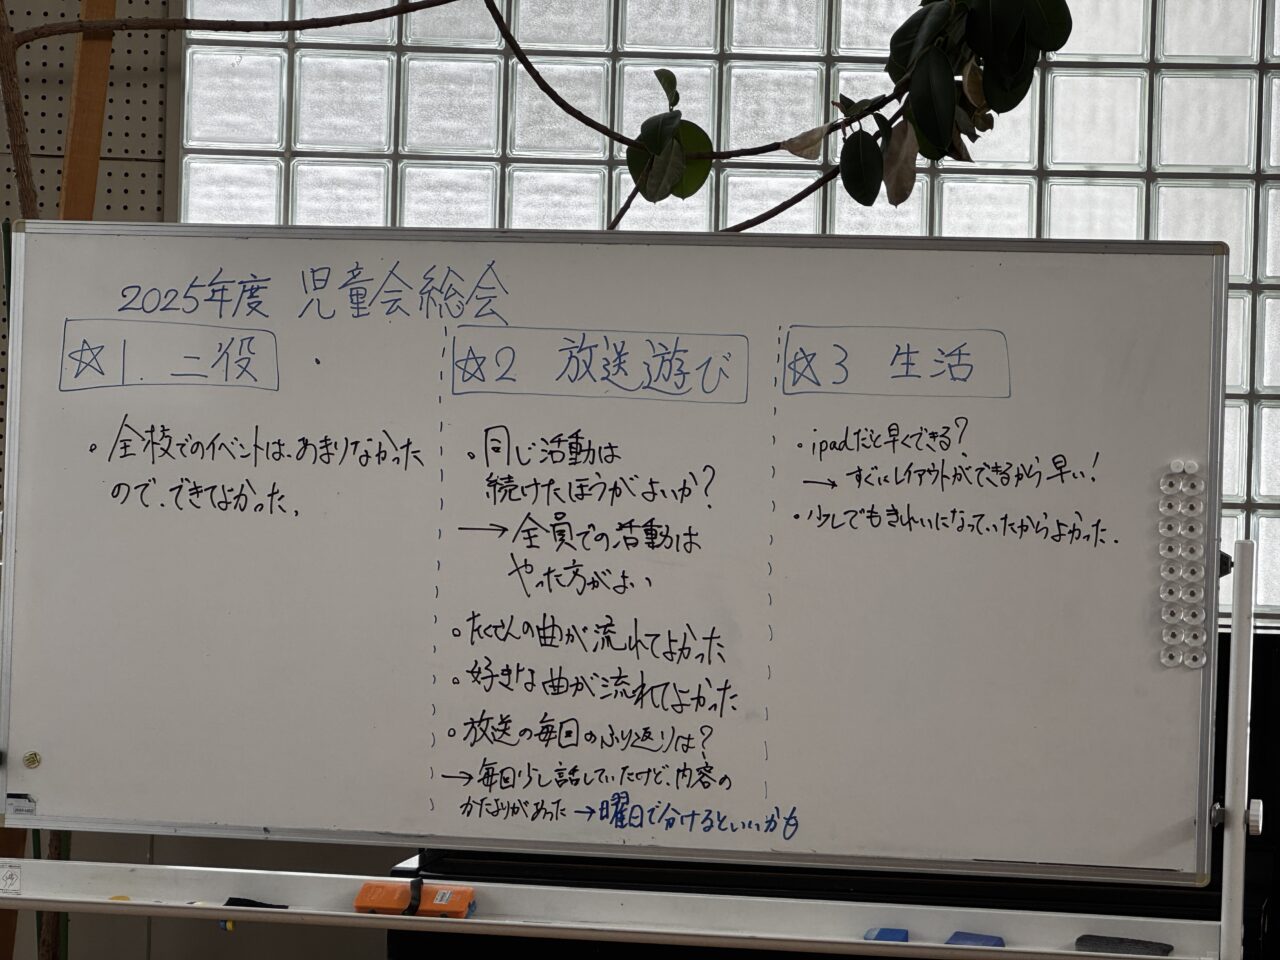 2025年度 児童会総会
☆1. 二役
。全校でのイベントは、あまりなかった
ので、できてよかった。
☆2 放送遊び
。同じ活動は
続けたほうがよいか?
→全員での活動は
やった方がよい
。たくさんの曲が流れてよかった
。好きな曲が流れてよかった
。放送の毎回のふり返りは?
→毎回少し話していたけど、内容の
かたよりがあった→曜日で分けるといいかも
☆3 生活
・ipadだと早くできる?
→すぐにレイアウトができるから早い!
・少しでもきれいになっていたからよかった.